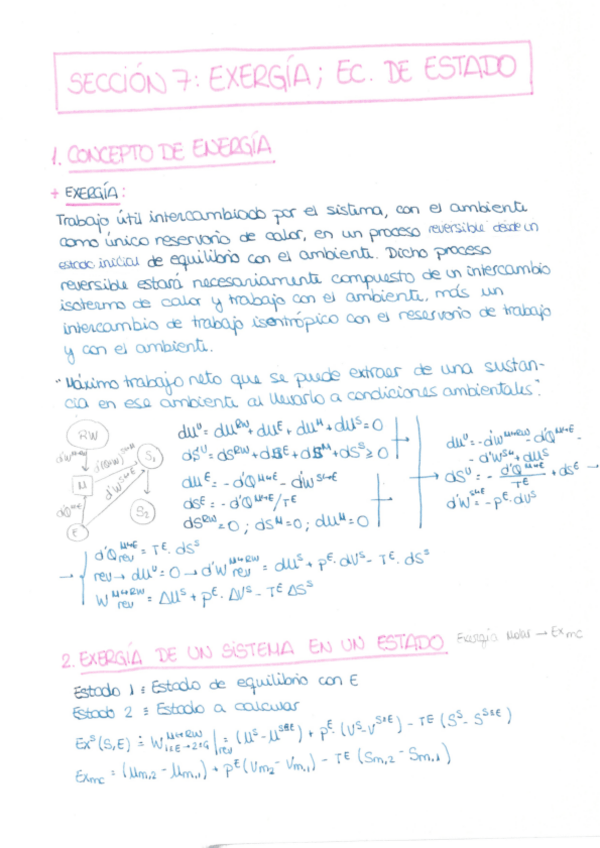 SECCIÓN 7: EXERGÍA; EC. DE ESTADO
1. CONCEPTO DE ENERGÍA
+ EXERGÍA:
Trabajo útil intercambiado por el sistema, con el ambiente
como único reservorio de calor, en un proceso reversible desde un
estado inicial de equilibrio con el ambiente. Dicho proceso
reversible estará necesariamente compuesto de un intercambio
isotermo de calor y trabajo con el ambiente, más un
intercambio de trabajo isentrópico con el reservorio de trabajo
y con el ambiente.
"Máximo trabajo neto que se puede extraer de una sustan-
cia en ese ambiente al llevarlo a condiciones ambientales".
RW
S₁
M
S₂
E
dU^U = dU^RW + dU^E + dU^M + dU^S = 0
dS^U = dS^RW + dS^E + dS^M + dS^S ≥ 0
dU^E = -d'Q^M↔E - d'W^S↔E
dS^E = -d'Q^M↔E/T^E
dS^RW = 0; dS^M = 0; dU^M = 0
d'W^S↔E = -P^E·dV^S
d'Q_rev^M↔E = T^E·dS^S
rev → dU^U = 0 → d'W_rev^M↔RW = dU^S + P^E·dV^S - T^E·dS^S
W_rev^M↔RW = ΔU^S + P^E·ΔV^S - T^E ΔS^S
2. EXERGÍA DE UN SISTEMA EN UN ESTADO Exergía Molar → Ex_mc
Estado 1 ≡ Estado de equilibrio con E
Estado 2 ≡ Estado a calcular
Ex_mc = (U_m,2 - U_m,1) + P^E (V_m,2 - V_m,1) - T^E (S_m,2 - S_m,1)